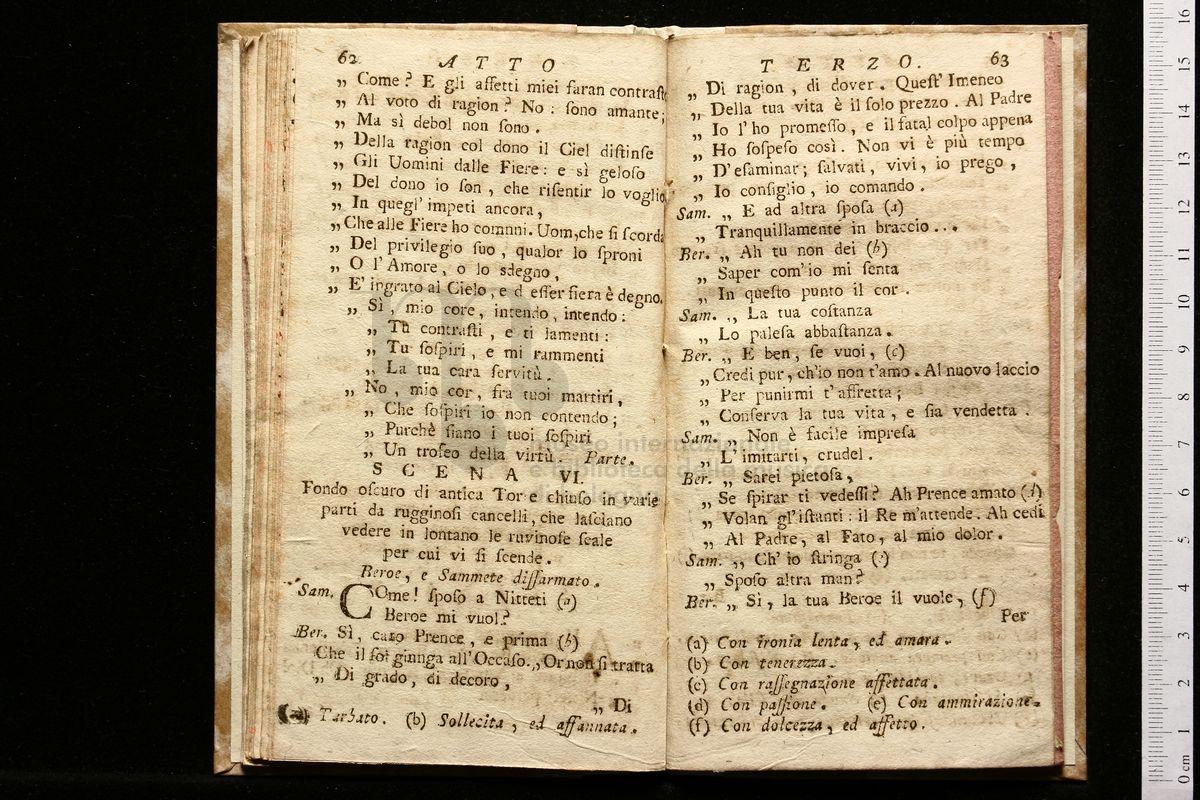 62 ATTO
„ Come? E gli affetti miei ſaran contraſto
„ Al voto di ragion? No: ſono amante;
„ Ma sì debol non ſono.
„ Della ragion col dono il Ciel diſtinſe
„ Gli Uomini dalle Fiere: e sì geloſo
„ Del dono io ſon, che riſentir lo voglio
„ In quegl' impeti ancora,
„ Che alle Fiere ho comuni. Uom, che ſi ſcorda
„ Del privilegio ſuo, qualor lo ſproni
„ O l'Amore, o lo sdegno,
„ E' ingrato al Cielo, e d' eſſer fiera è degno.
„ Sì, mio core, intendo, intendo:
„ Tu contraſti, e ti lamenti:
„ Tu ſoſpiri, e mi rammenti
„ La tua cara ſervitù.
„ No, mio cor, fra tuoi martiri,
„ Che ſoſpiri io non contendo;
„ Purchè ſiano i tuoi ſoſpiri
„ Un trofeo della virtù. Parte.
SCENA VI.
Fondo oſcuro di antica Torre chiuſo in varie
parti da rugginoſi cancelli, che laſciano
vedere in lontano le ruvinoſe ſcale
per cui vi ſi ſcende.
Beroe, e Sammete diſſarmato.
Sam. COme! ſpoſo a Nitteti (a)
Beroe mi vuol?
Ber. Sì, caro Prence, e prima (b)
Che il ſol giunga all'Occaſo. „ Or non ſi tratta
„ Di grado, di decoro,
„ Di
(a) Turbato. (b) Sollecita, ed affannata.
TERZO. 63
„ Di ragion, di dover. Queſt' Imeneo
„ Della tua vita è il ſolo prezzo. Al Padre
„ Io l'ho promeſſo, e il fatal colpo appena
„ Ho ſoſpeſo così. Non vi è più tempo
„ D'eſaminar; ſalvati, vivi, io prego,
„ Io conſiglio, io comando.
Sam. „ E ad altra ſpoſa (a)
„ Tranquillamente in braccio...
Ber. „ Ah tu non dei (b)
„ Saper com'io mi ſenta
„ In queſto punto il cor.
Sam. „ La tua coſtanza
„ Lo paleſa abbaſtanza.
Ber. „ E ben, ſe vuoi, (c)
„ Credi pur, ch'io non t'amo. Al nuovo laccio
„ Per punirmi t'affretta;
„ Conſerva la tua vita, e ſia vendetta.
Sam. „ Non è facile impreſa
„ L'imitarti, crudel.
Ber. „ Sarei pietoſa,
„ Se ſpirar ti vedeſſi? Ah Prence amato (d)
„ Volan gl'iſtanti: il Re m'attende. Ah cedi
„ Al Padre, al Fato, al mio dolor.
Sam. „ Ch' io ſtringa (e)
„ Spoſo altra man?
Ber. „ Sì, la tua Beroe il vuole, (f)
Per
(a) Con ironia lenta, ed amara.
(b) Con tenerezza.
(c) Con raſſegnazione affettata.
(d) Con paſſione. (e) Con ammirazione.
(f) Con dolcezza, ed affetto.
museo internazionale
e biblioteca della musica
0 cm 1 2 3 4 5 6 7 8 9 10 11 12 13 14 15 16